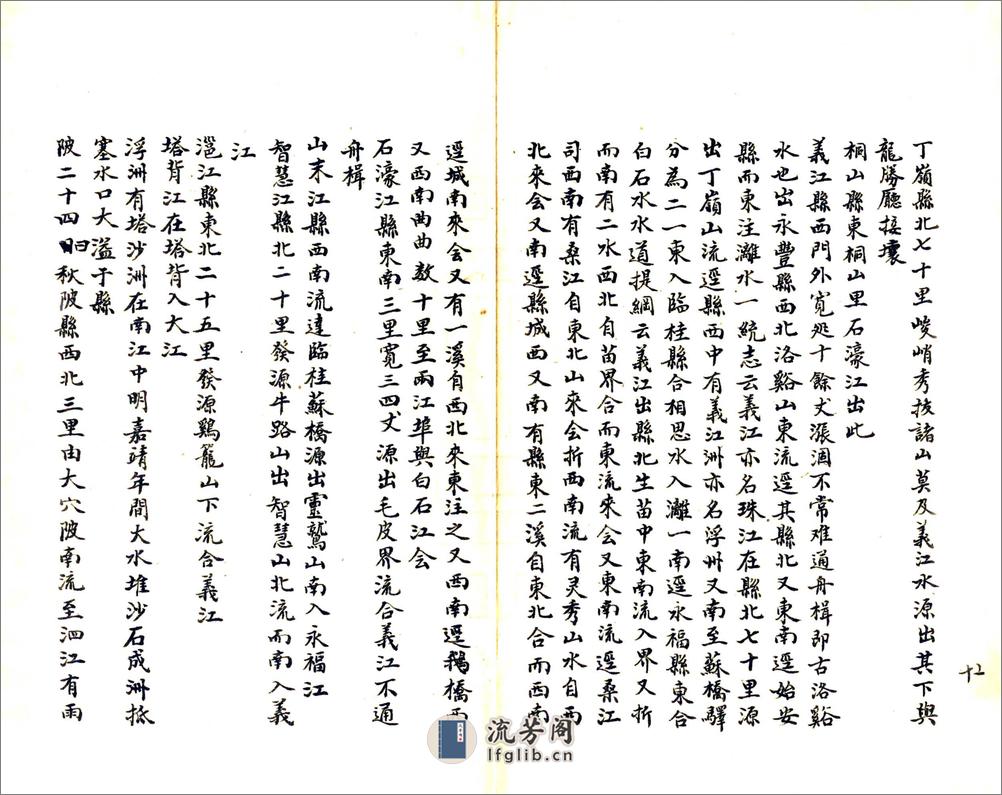 丁嶺縣北七十里峻峭秀拔諸山莫及義江水源出其下與
龍勝廳接壤
桐山縣東桐山里石濠江出此
義江縣西門外寬処十餘丈漲涸不常难通舟楫即古洛谿
水也出永豐縣西北洛谿山東流逕其縣北又東南逕始安
縣而東注灕水一統志云義江亦名珠江在縣北七十里源
出丁嶺山流逕縣西中有義江洲亦名浮州又南至蘇橋驛
分為二一東入臨桂縣合相思水入灕一南逕永福縣東合
白石水水道提綱云義江出縣北生苗中東南流入界又折
而南有二水西北自苗界合而東流來会又東南流逕桑江
司西南有桑江自東北山來会折西南流有灵秀山水自西
北來会又南逕縣城西又南有縣東二溪自東北合而西南
逕城南來会又有一溪自西北來東注之又西南逕鵝橋西
又西南曲曲数十里至兩江埠與白石江会
石濠江縣東南三里寬三四丈源出毛皮界流合義江不通
舟楫
山末江縣西南流達臨桂蘇橋源出靈鷲山南入永福江
智慧江縣北二十里發源牛路山出智慧山北流而南入義
江
滬江縣東北二十五里發源鷄籠山下流合義江
塔背江在塔背入大江
浮洲有塔沙洲在南江中明嘉靖年間大水堆沙石成洲抵
塞水口大溢于縣
陂二十四曰秋陂縣西北三里由大穴陂南流至泗江有雨
十2
流芳阁
lfglib.cn